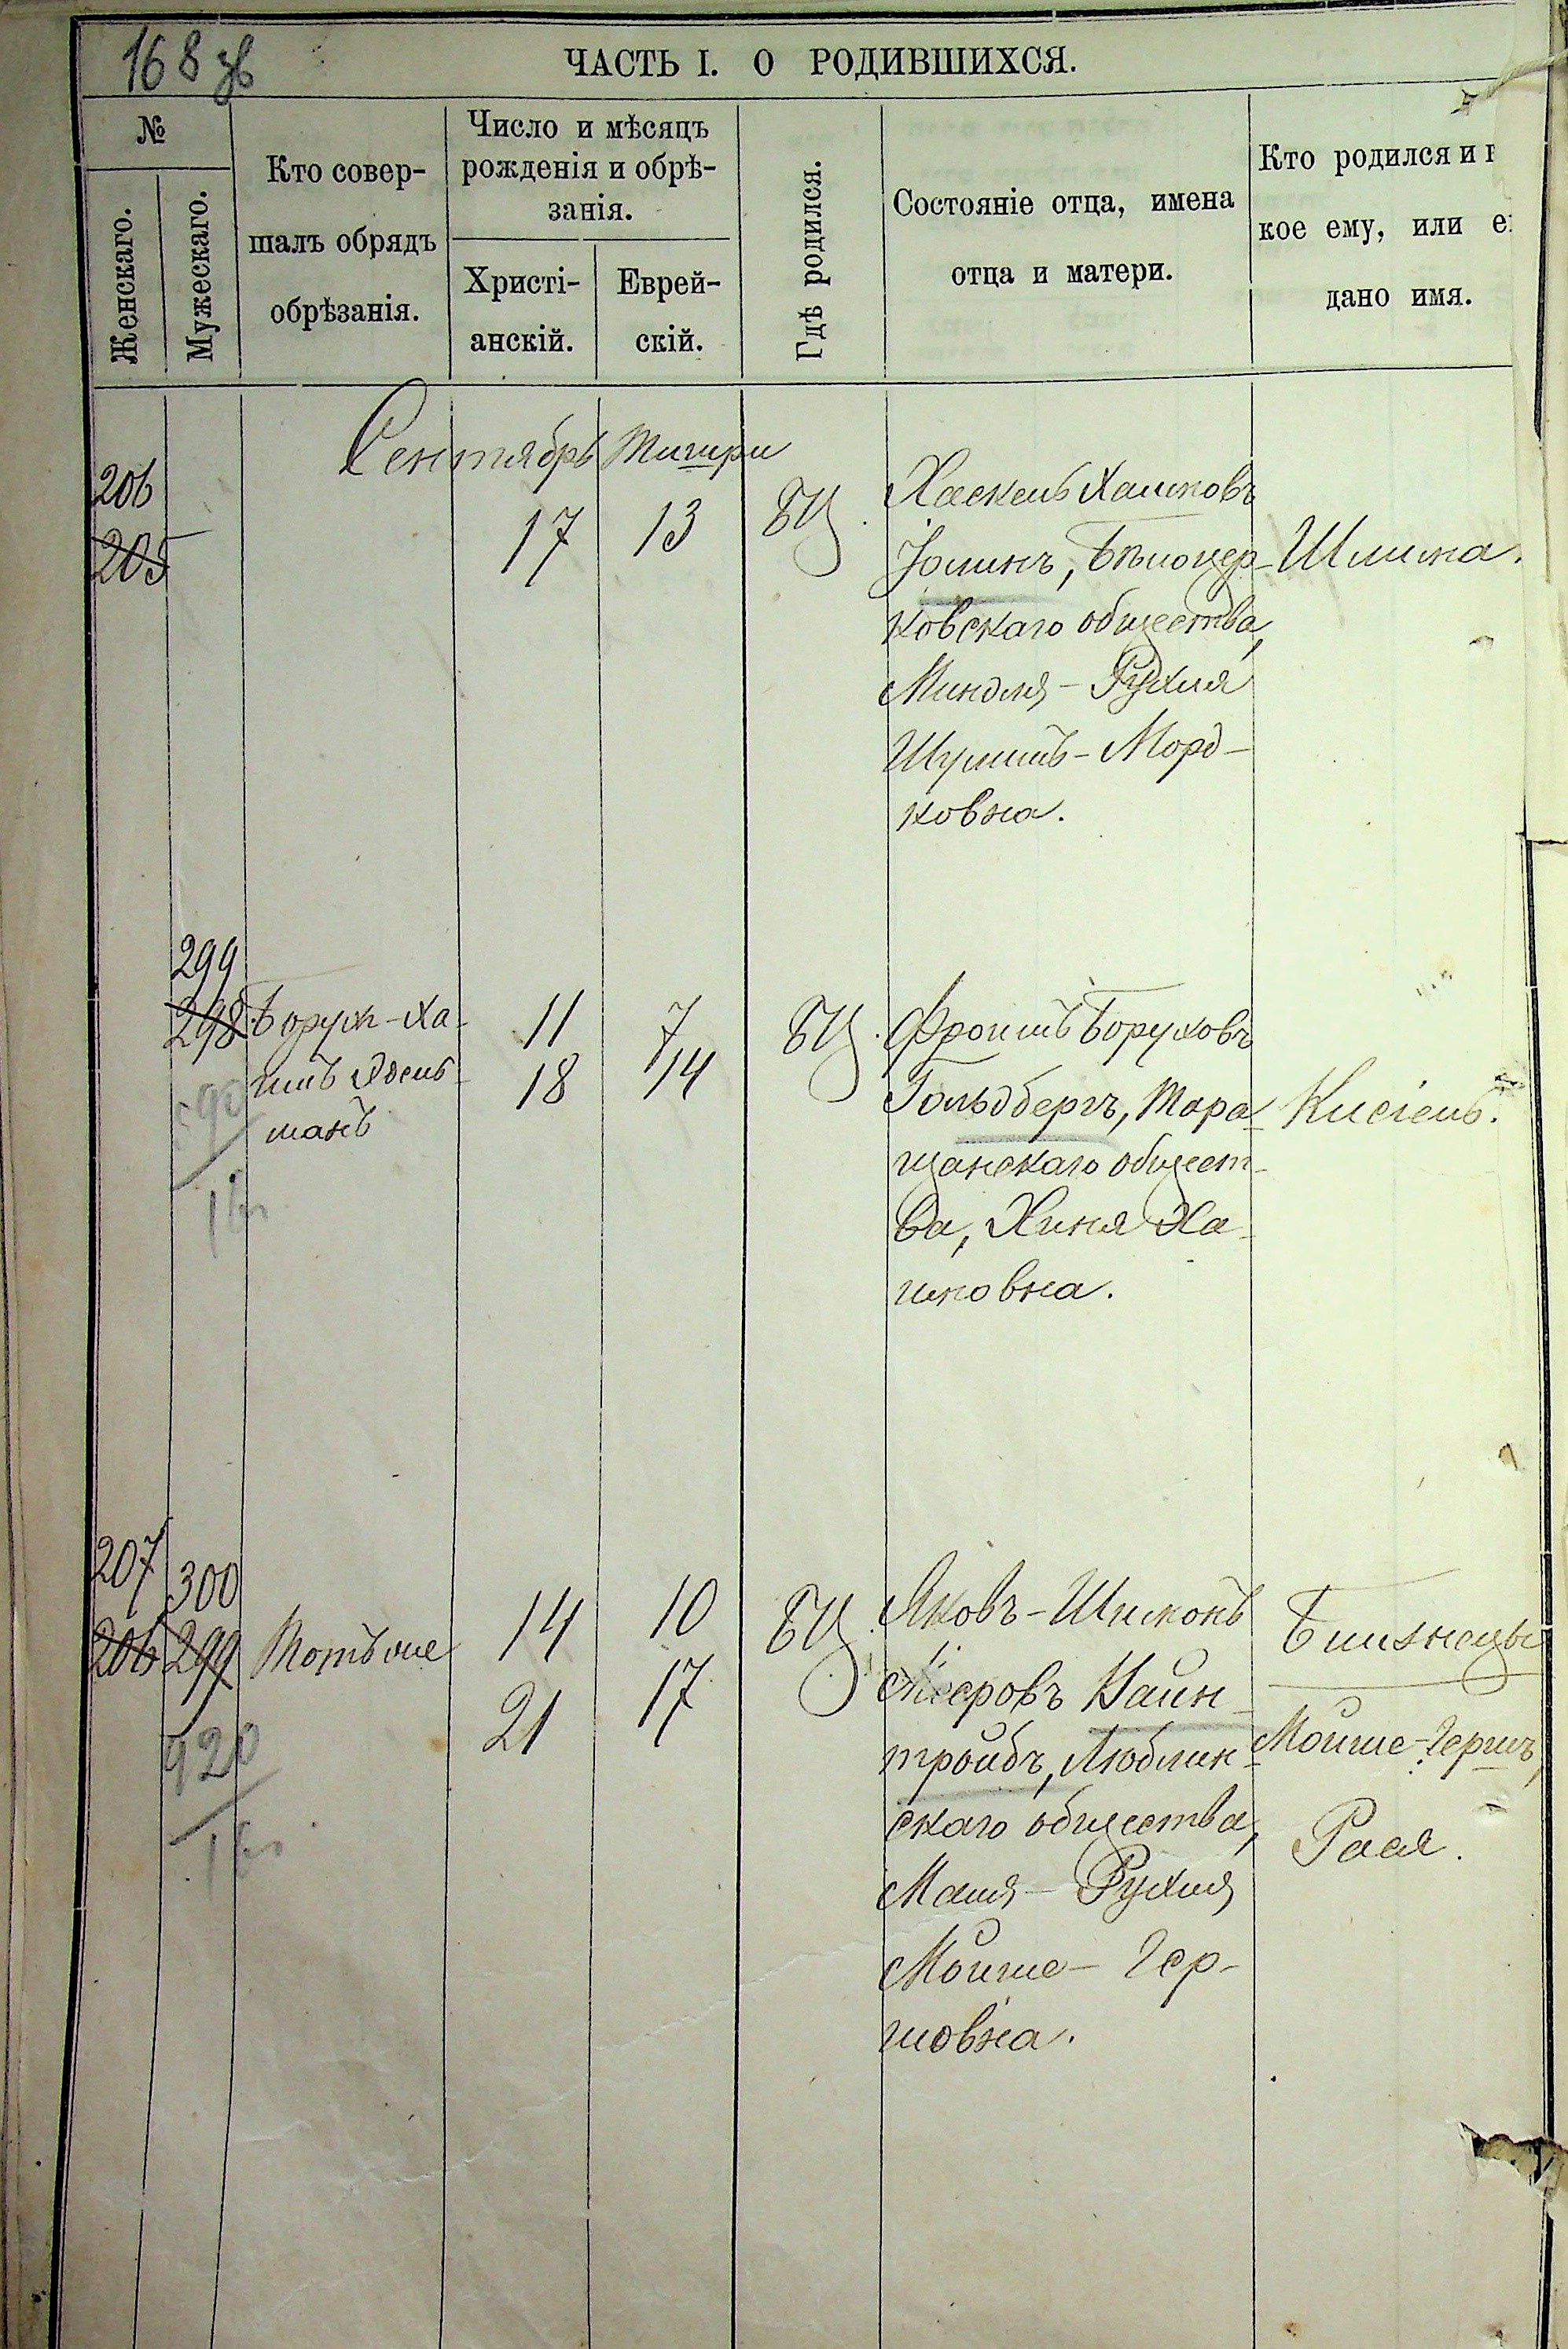 168 об
ЧАСТЬ I. О РОДИВШИХСЯ.
№
Женскаго.
Мужескаго.
Кто совер-
шалъ обрядъ
обрѣзанія.
Число и мѣсяцъ
рожденія и обрѣ-
занія.
Христі-
анскій.
Еврей-
скій.
Гдѣ родился.
Состояніе отца, имена
отца и матери.
Кто родился и
кое ему, или
дано имя.
Сентябрь Тишри
206
205
17
13
БЦ.
Хаскель Хаимовъ
Юлинъ, Бѣлоцер-
ковскаго общества,
Миндля - Рухля
Шулимъ - Морд-
ковна.
Шлима.
299
298
Борухъ-Ха-
имъ Эдель-
манъ
11
18
7
14
БЦ.
Фроимъ Боруховъ
Гольдбергъ, Тара-
щанскаго общест-
ва, Хиня Ха-
имовна.
Кисіель.
207
206
300
299
920
Тотъ же
14
21
10
17
БЦ.
Яковъ - Шимонъ
Мееровъ Вайн-
тройбъ, Люблин-
скаго общества,
Маля - Рухля
Мойше - Гер-
шовна.
Близнецы
Мойше-Гершъ,
Рася.